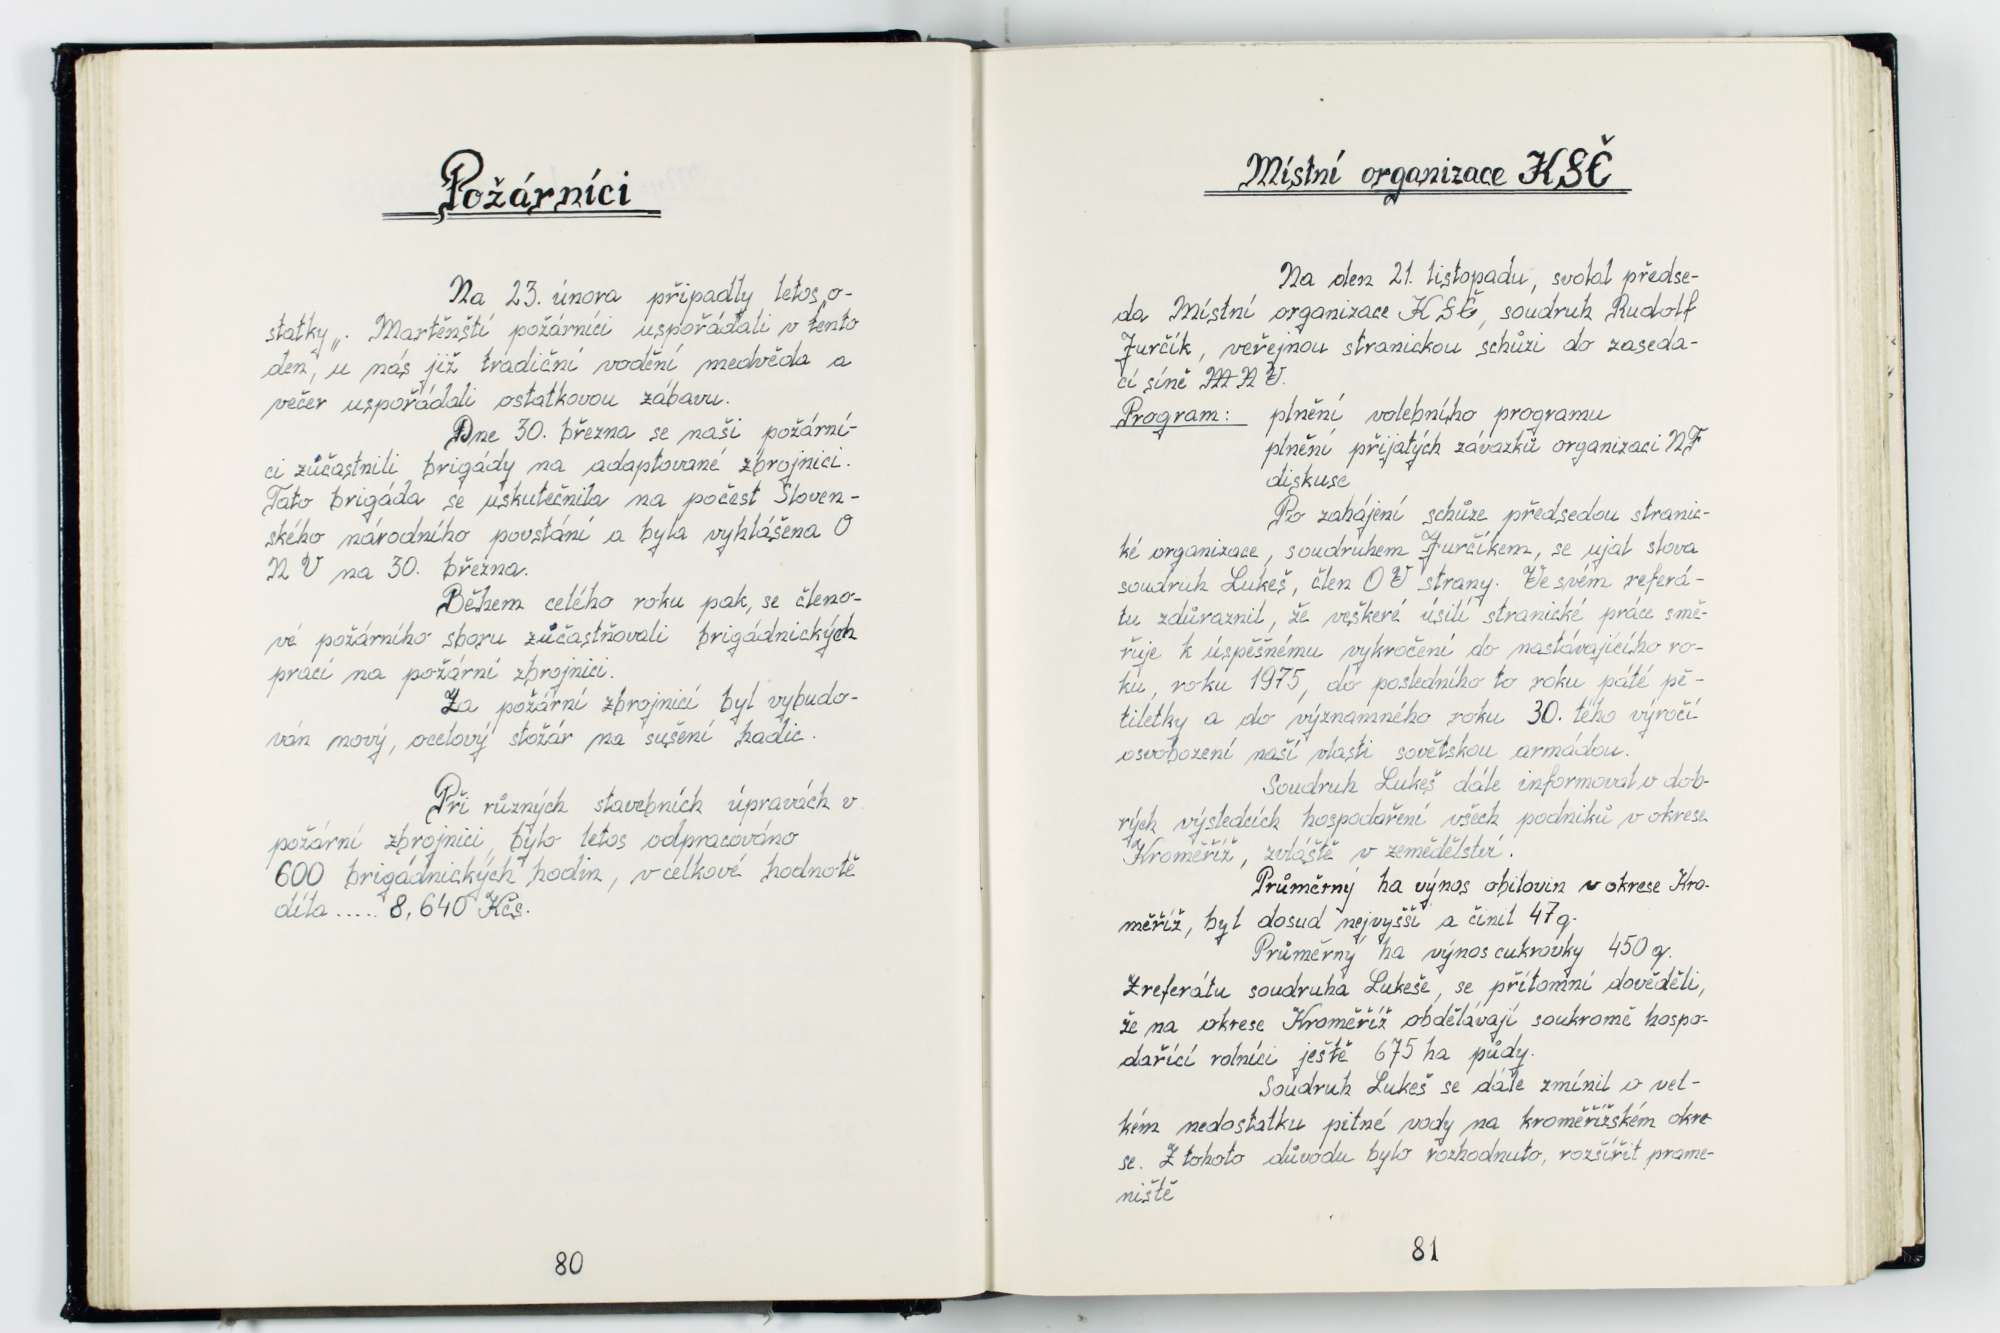 Požárníci
Na 23. února připadly letos „o-
statky„. Martěnští požárníci uspořádali v tento
den, u nás již tradiční vodění medvěda a
večer uspořádali ostatkovou zábavu.
Dne 30. března se naši požární-
ci zůčastnili brigády na adaptované zbrojnici.
Tato brigáda se uskutečnila na počest Sloven-
ského národního povstání a byla vyhlášena O
N V na 30. března.
Během celého roku pak, se členo-
vé požárního sboru zůčastňovali brigádnických
prací na požární zbrojnici.
Za požární zbrojnicí byl vybudo-
ván nový, ocelový stožár na sušení hadic.
Při různých stavebních úpravách v
požární zbrojnici, bylo letos odpracováno
600 brigádnických hodin, v celkové hodnotě
díla ..... 8,640 Kčs.
80
Místní organizace KSČ
Na den 21. listopadu, svolal předse-
da Místní organizace KSČ, soudruh Rudolf
Jurčík, veřejnou stranickou schůzi do zaseda-
cí síně MNV.
Program: plnění volebního programu
plnění přijatých závazků organizaci NF
diskuse
Po zahájení schůze předsedou stranic-
ké organizace, soudruhem Jurčíkem, se ujal slova
soudruh Lukeš, člen OV strany. Ve svém referá-
tu zdůraznil, že veškeré úsilí stranické práce smě-
řuje k úspěšnému vykročení do nastávajícího ro-
ku, roku 1975, do posledního to roku páté pě-
tiletky a do významného roku 30. tého výročí
osvobození naší vlasti sovětskou armádou.
Soudruh Lukeš dále informoval o dob-
rých výsledcích hospodaření všech podniků v okrese
Kroměříž, zvláště v zemědělství.
Průměrný ha výnos obilovin v okrese Kro-
měříž, byl dosud nejvyšší a činil 47 q.
Průměrný ha výnos cukrovky 450 q.
Z referátu soudruha Lukeše, se přítomní dověděli,
že na okrese Kroměříž obdělávají soukromě hospo-
dařící rolníci ještě 675 ha půdy.
Soudruh Lukeš se dále zmínil o vel-
kém nedostatku pitné vody na kroměřížském okre
se. Z tohoto důvodu bylo rozhodnuto, rozšířit prame-
niště
81